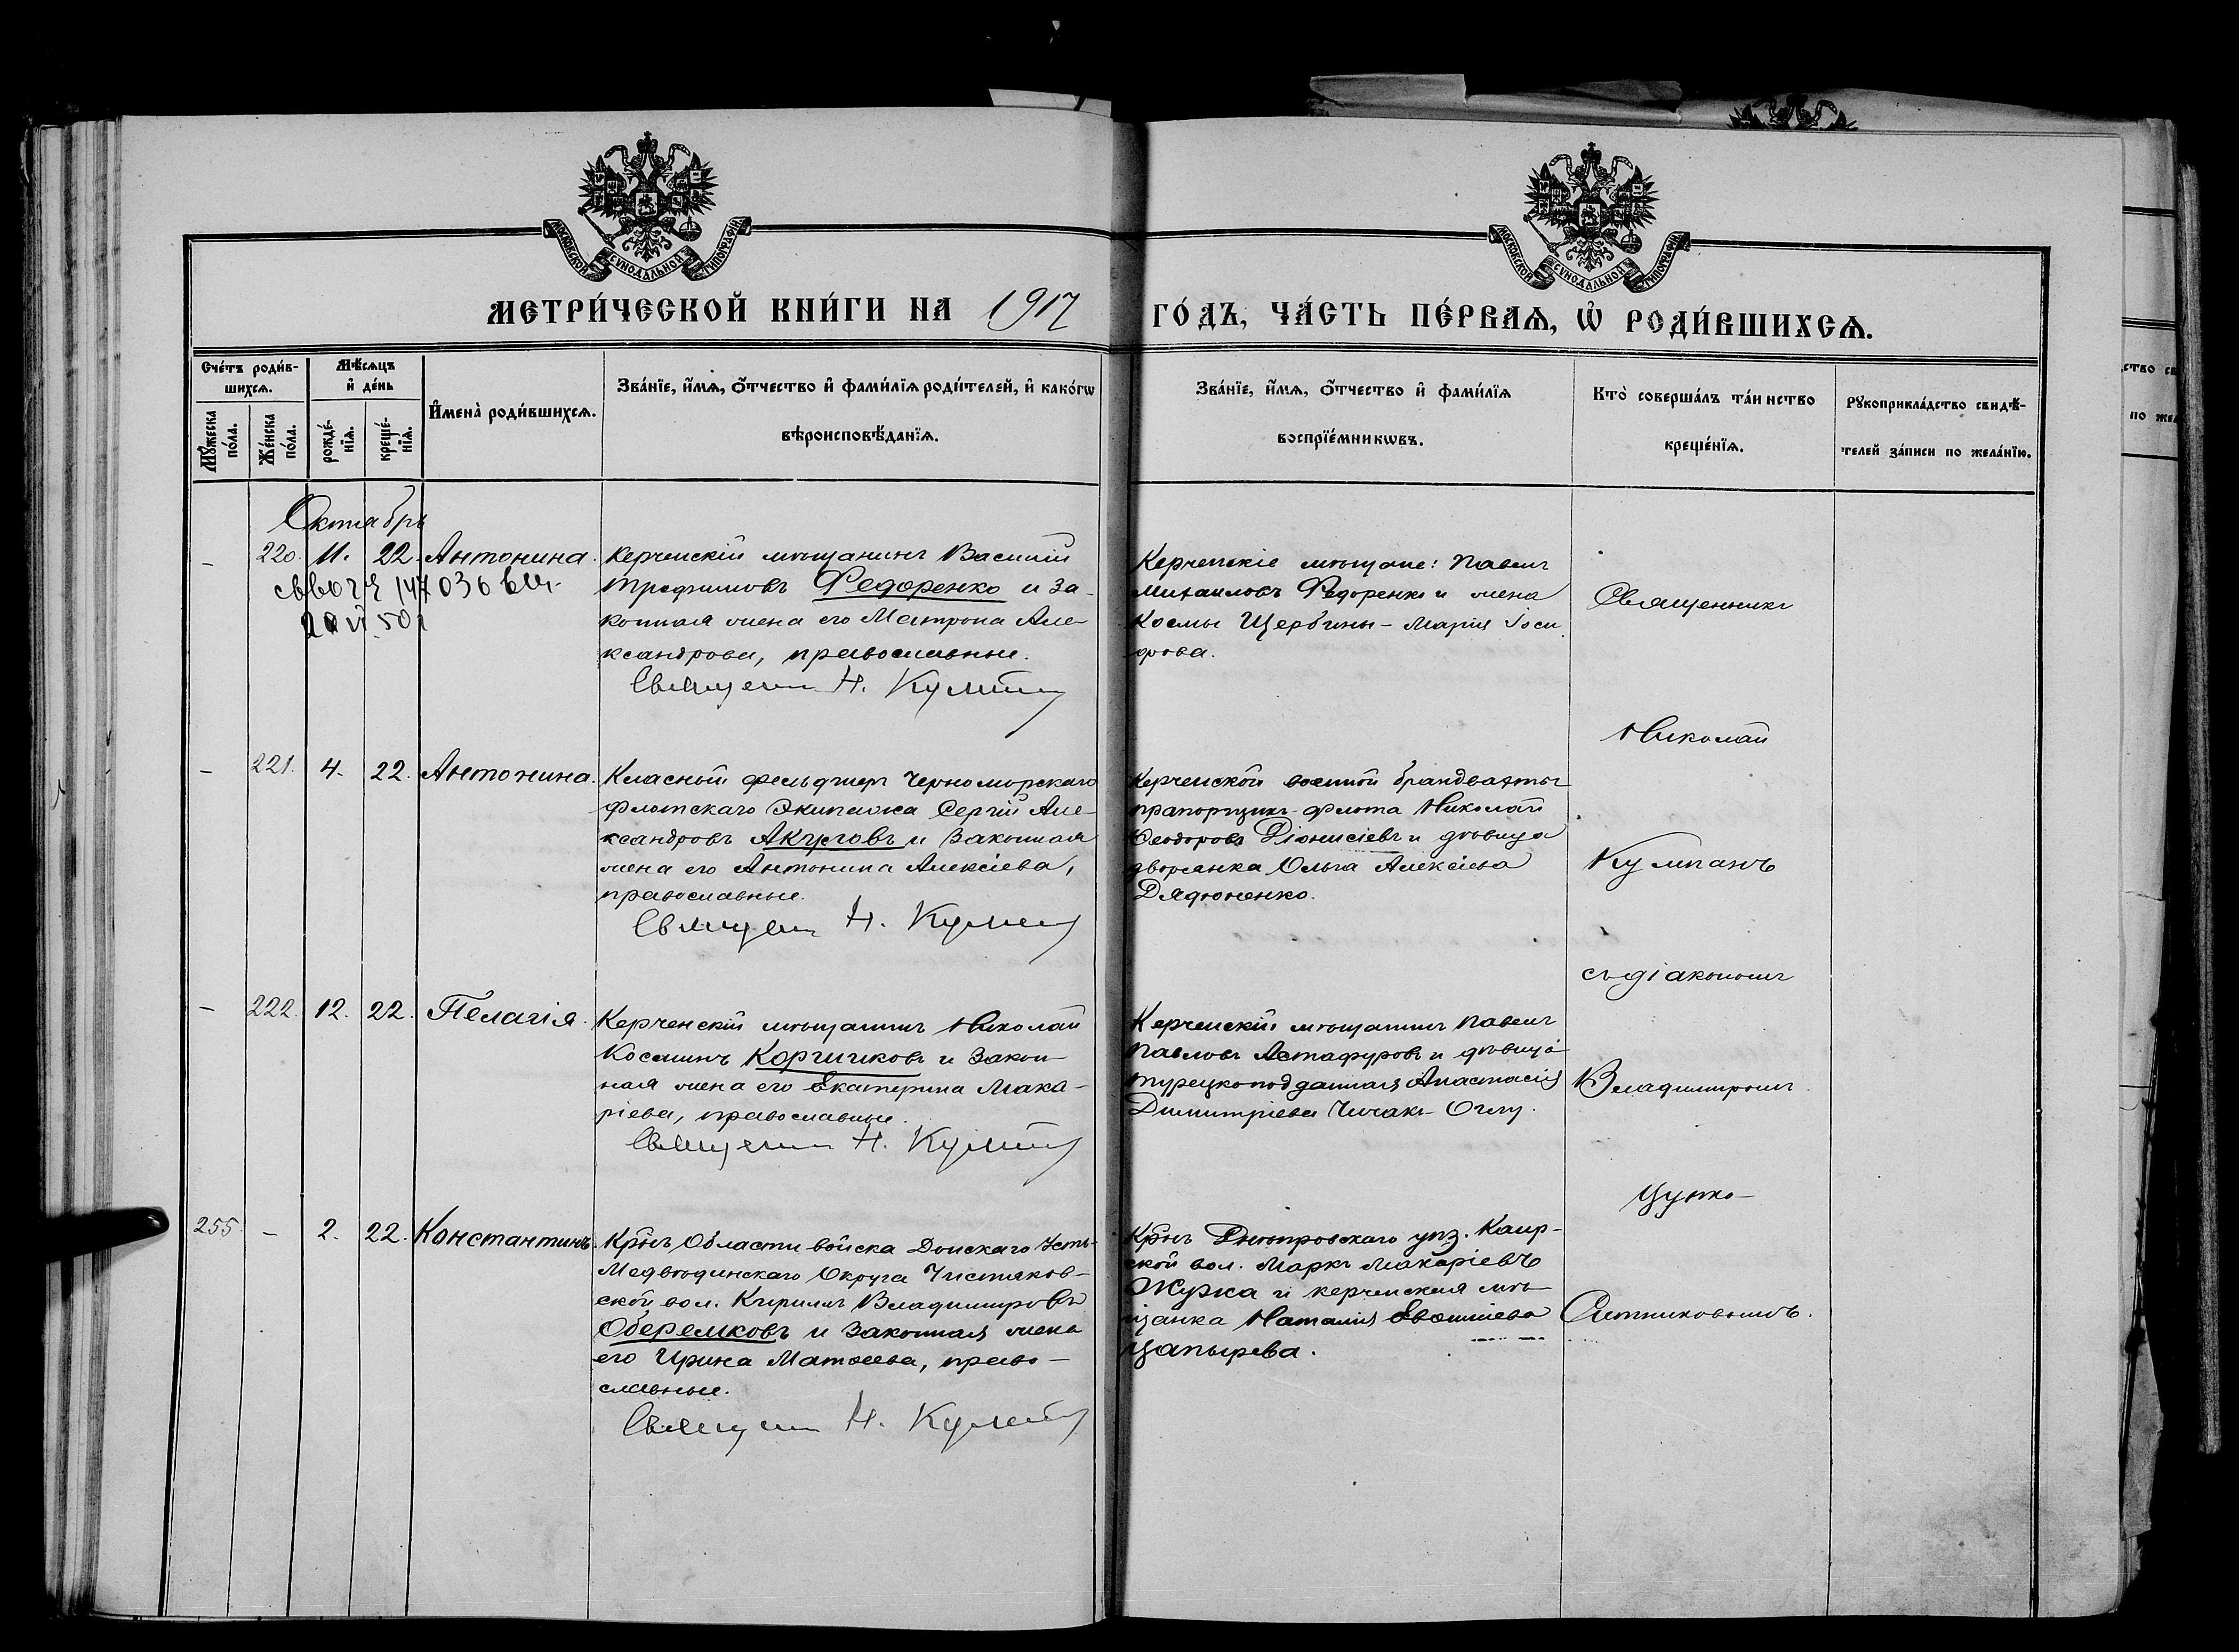 МОСКОВСКОЙ СѴНОДАЛЬНОЙ ТИПОГРАФІИ
МОСКОВСКОЙ СѴНОДАЛЬНОЙ ТИПОГРАФІИ
МЕТРИ́ЧЕСКОЙ КНИ́ГИ НА 1917 ГО́ДЪ, ЧА́СТЬ ПЕ́РВАЯ, Ѡ҆ РОДИ́ВШИХСЯ.
Сче́тъ роди́в-
шихся.
Мꙋ́жеска
по́ла.
Же́нска
по́ла.
Мѣ́сяцъ
и҆ де́нь
рожде́-
нїя.
креще́-
нїя.
И҆мена̀ роди́вшихся.
Зва́нїе, и҆́мя, ѻ҆́тчество и҆ фами́лїя роди́телей, и҆ како́гѡ
вѣроисповѣ́данїя.
Зва́нїе, и҆́мя, ѻ҆́тчество и҆ фами́лїя
воспрїе́мникѡвъ.
Кто̀ соверша́лъ та́инство
креще́нїя.
Рꙋкоприкла́дство свидѣ́-
телей за́писи по жела́нїю.
Октябрь
– 220. 11. 22. Антонина.
Керченскій мѣщанинъ Василій
Трофимовъ Федоренко и за-
конная жена его Матрона Але-
ксандрова, православные.
Священникъ Н. Кумпанъ
Керченскіе мѣщане: Павелъ
Михаиловъ Федоренко и жена
Космы Щербины – Марія Іоси
фова.
Священникъ
Николай
– 221. 4. 22. Антонина.
Класный фельдшеръ Черноморскаго
флотскаго Экипажа Сергій Але-
ксандровъ Акуловъ и законная
жена его Антонина Алексіева,
православные.
Священ Н. Кумпанъ
Керченской военной брандвахты
прапорщикъ флота Николай
Ѳеодоровъ Діонисіевъ и дѣвица
дворянка Ольга Алексіева
Дядюненко.
Кумпанъ
съ діакономъ
– 222. 12. 22. Пелагія.
Керченскій мѣщанинъ Николай
Косминъ Коргичковъ и закон-
ная жена его Екатерина Мака-
ріева, православные.
Священникъ Н. Кумпанъ
Керченскій мѣщанинъ Павелъ
Павловъ Астафуровъ и дѣвица
турецкоподданная Анастасія
Димитріева Чичакъ-Оглу.
Владимиромъ
255. – 2. 22. Константинъ.
Кр҃нъ Области войска Донскаго Усть-
Медвѣдинскаго Округа Чистяков-
ской вол. Кириллъ Владимировъ
Оберемковъ и законная жена
его Ирина Матѳеева, право-
славные.
Священ Н. Кумпанъ
Кр҃нъ Днѣпровскаго уѣз. Каир-
ской вол. Маркъ Макаріевъ
Жужа и керченская мѣ-
щанка Наталія
Цапырева.